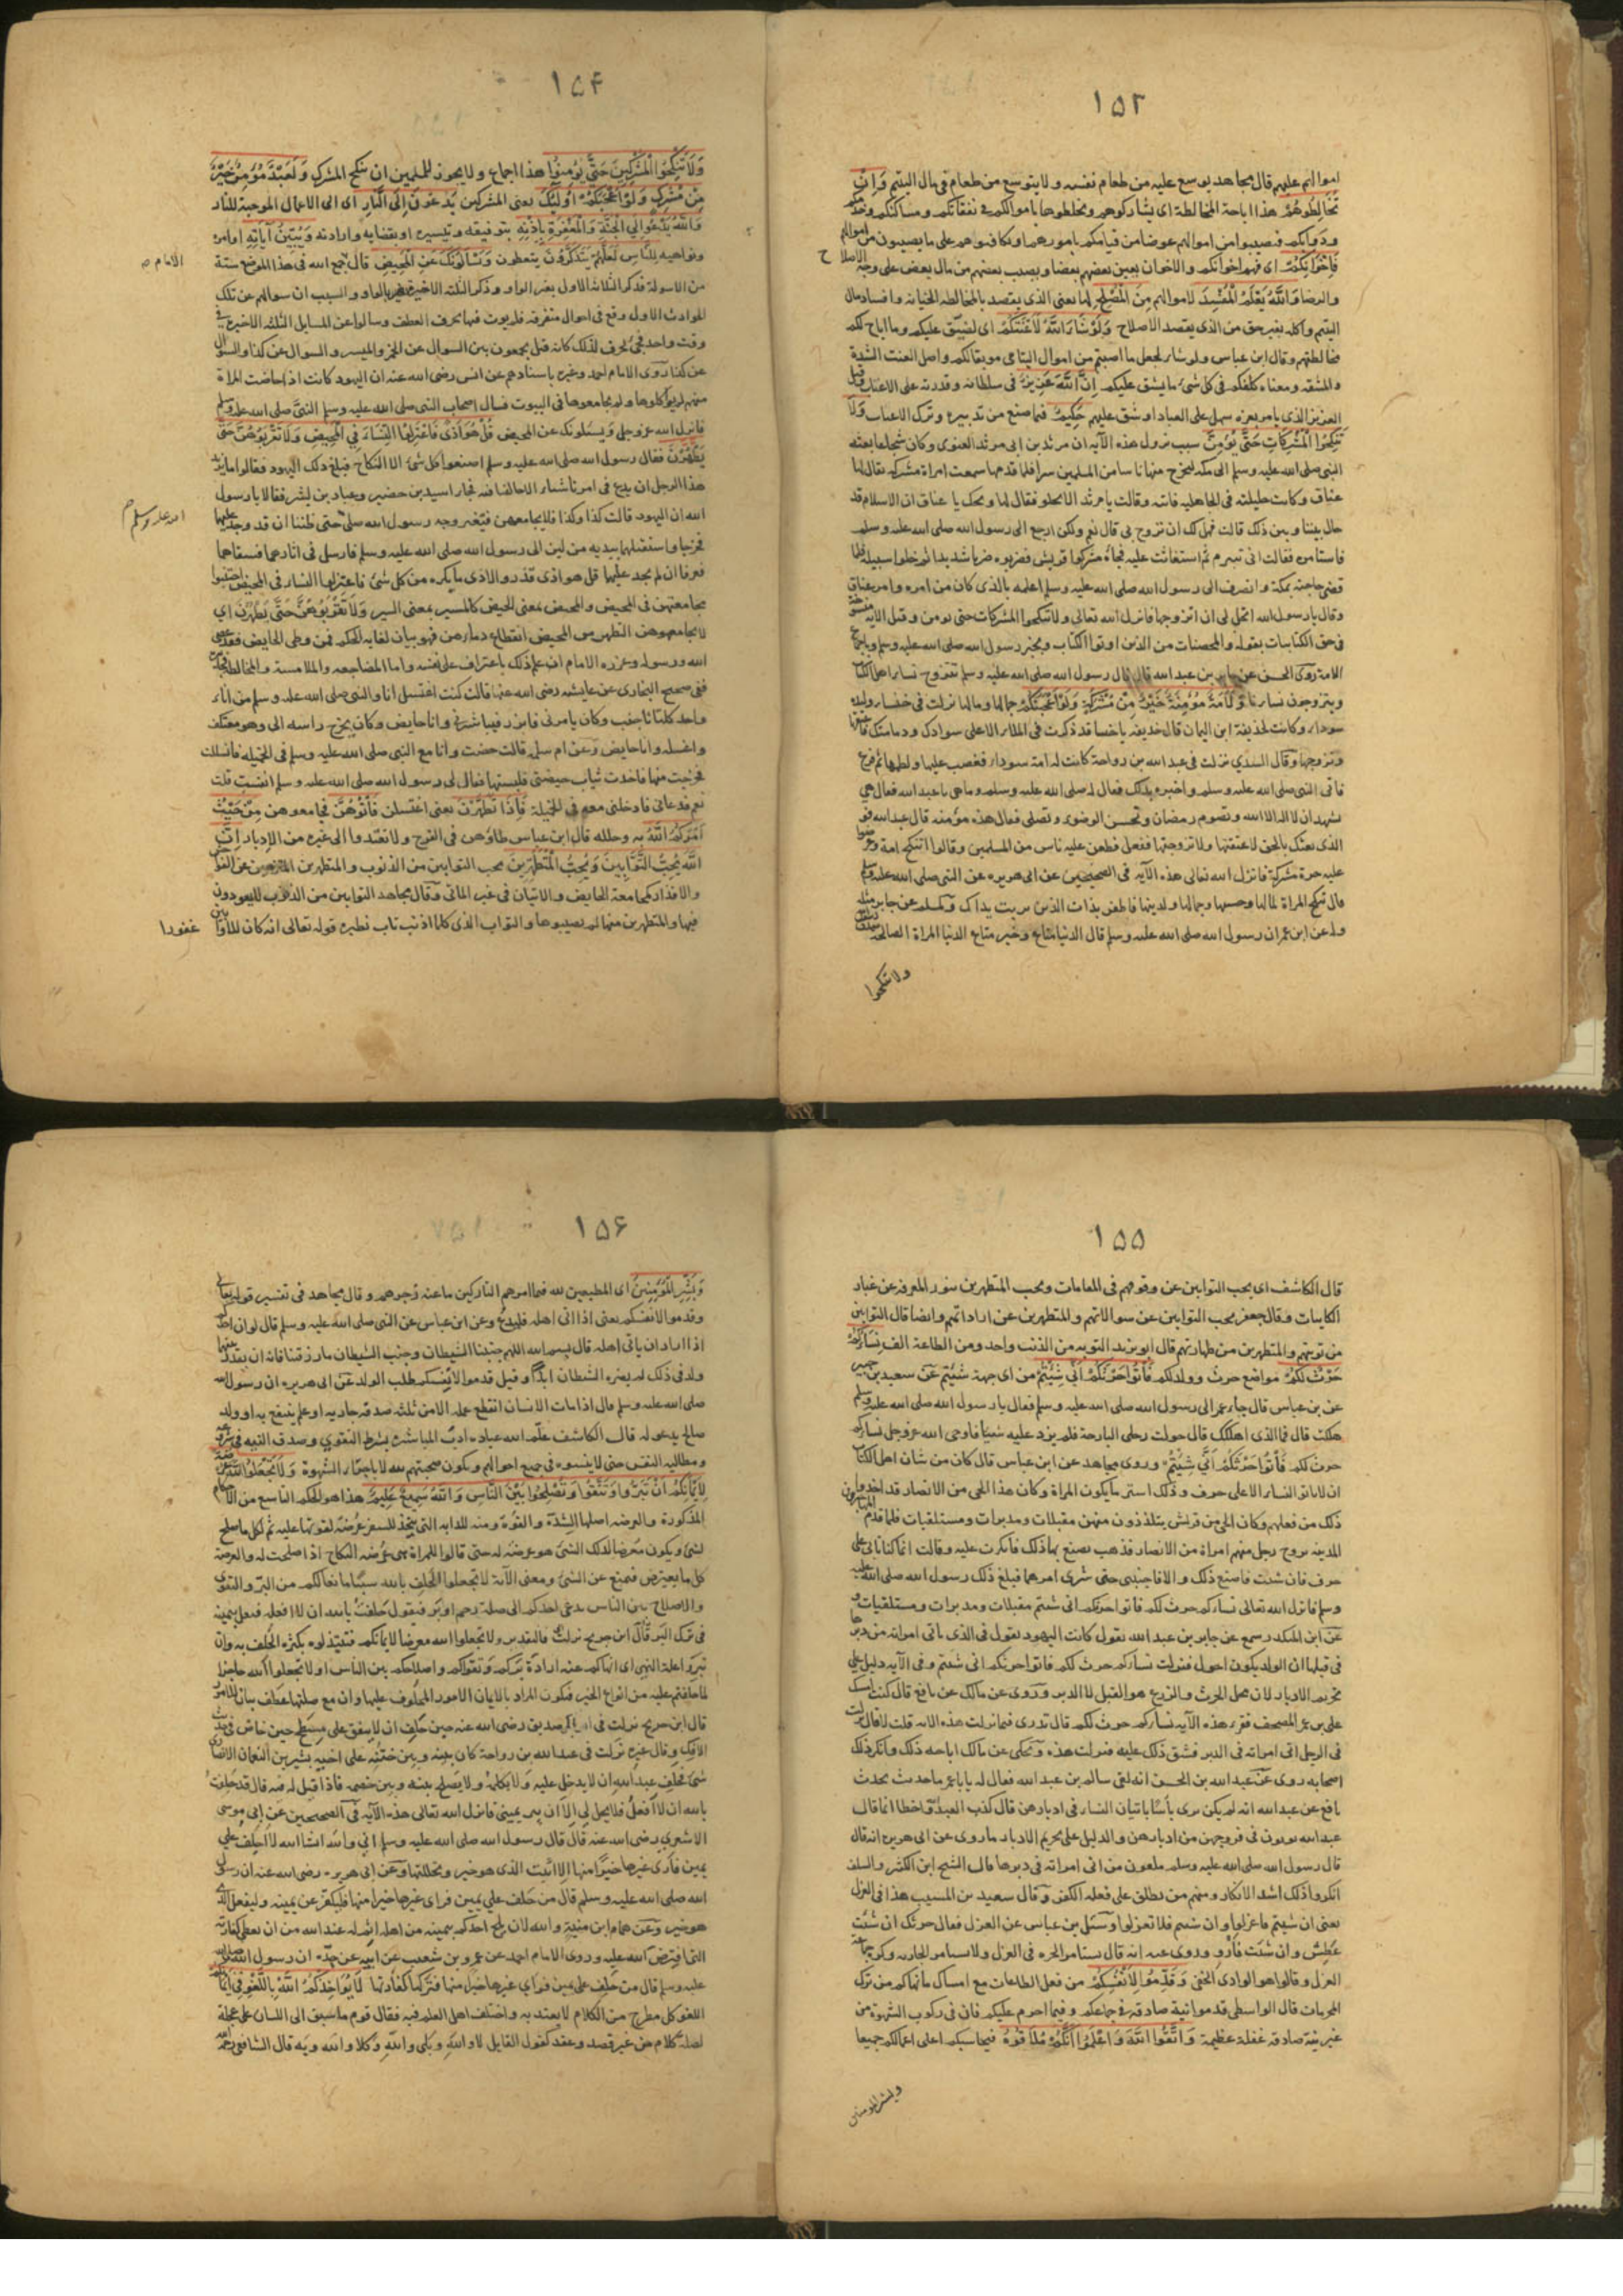 ١٥٣
اموالهم عليهم قال مجاهد يوسع عليه من طعام نفسه ولا يتوسع من طعام في مال اليتيم وَاِنْ
تُخَالِطُوهُمْ هذا اباحة المخالطة اى يشاركوهم وتخلطوها باموالكم في نفقاتكم ومساكنكم وخدمكم
ودوابكم فتصيبوا من اموالهم عوضا من قيامكم بامورهم وتكافيوهم على ما يصيبون من اموالهم
فَاِخْوَانُكُمْ اى فهم اخوانكم والاخوان يعين بعضهم بعضا ويصيب بعضهم من مال بعض على وجه الاصلاح
والرضا وَاللَّهُ يَعْلَمُ الْمُفْسِدَ لاموالهم مِنَ الْمُصْلِحِ لها يعنى الذى يقصد بالمخالطه الخيانه وافساد مال
اليتيم واكله بغير حق من الذى يقصد الاصلاح وَلَوْ شَاءَ اللَّهُ لَاَعْنَتَكُمْ اى لضيّق عليكم وما اباح لكم
مخالطتهم وقال ابن عباس ولو شاء لجعل ما اصبتم من اموال اليتامى موبقا لكم واصل العنت الشدة
والمشقه ومعناه كلفكم فى كل شئ ما يشق عليكم اِنَّ اللَّهَ عَزِيزٌ فى سلطانه وقدرته على الاعنات وقيل
العزيز الذى يامر بعزه سهل على العباد او شق عليهم حَكِيمٌ فيما صنع من تدبيره وترك الاعنات وَلَا
تَنْكِحُوا الْمُشْرِكَاتِ حَتَّى يُؤْمِنَّ سبب نزول هذه الآيه ان مرثد بن ابى مرثد الغنوى وكان شجاعا بعثه
النبى صلى الله عليه وسلم الى مكه ليخرج منها ناسا من المسلمين سرا فلما قدمها سمعت امراة مشركه يقال لها
عناق وكانت خليلته فى الجاهليه فاتته وقالت يا مرثد الا تخلو فقال لها ويحك يا عناق ان الاسلام قد
حال بيننا وبين ذلك قالت فهل لك ان تزوج بى قال نعم ولكن ارجع الى رسول الله صلى الله عليه وسلم
فاستامره فقالت ابى تتبرم ثم استغاثت عليه فجاءه مشركوا قريش فضربوه ضربا شديدا ثم خلوا سبيله فلما
قضى حاجته بمكة وانصرف الى رسول الله صلى الله عليه وسلم اعلمه بالذى كان من امره وامر عناق
وقال يا رسول الله اتحل لى ان اتزوجها فانزل الله تعالى ولا تنكحوا المشركات حتى يومن وقيل الآيه منسوخة
فى حق الكتابيات بقوله والمحصنات من الذين اوتوا الكتاب وبخبر رسول الله صلى الله عليه وسلم وباجماع
الامة روى الحسن عن جابر بن عبد الله قال قال رسول الله صلى الله عليه وسلم نتزوج نساء اهل الكتاب
ويتزوجون نساءنا وَلَاَمَةٌ مُؤْمِنَةٌ خَيْرٌ مِنْ مُشْرِكَةٍ وَلَوْ اَعْجَبَتْكُمْ جمالها ومالها نزلت فى خنساء وليده
سوداء وكانت لحذيفة ابن اليمان قال حذيفه يا خنسا قد ذكرت فى الملاء الاعلى سوادك ودمامتك فاعتقها
وتزوجها وقال السدي نزلت فى عبد الله بن رواحة كانت له امة سوداء فغضب عليها ولطمها ثم فزع
فاتى النبى صلى الله عليه وسلم واخبره بذلك فقال له صلى الله عليه وسلم وما هى يا عبد الله فقال هى
تشهد ان لا اله الا الله وتصوم رمضان وتحسن الوضوء وتصلى فقال هذه مؤمنه قال عبد الله فو
الذى بعثك بالحق لاعتقنها ولاتزوجنها ففعل فطعن عليه ناس من المسلمين وقالوا اتنكح امة وعرضوا
عليه حرة مشركة فانزل الله تعالى هذه الآيه فى الصحيحين عن ابى هريره عن النبى صلى الله عليه وسلم
قال تنكح المراة لمالها وحسبها وجمالها ولدينها فاظفر بذات الدين تربت يداك ولمسلم عن جابر مثله
وله عن ابن عمر ان رسول الله صلى الله عليه وسلم قال الدنيا متاع وخير متاع الدنيا المراة الصالحة
ولا تنكحوا
١٥٤
وَلَا تُنْكِحُوا الْمُشْرِكِينَ حَتَّى يُؤْمِنُوا هذا اجماع ولا يجوز للمسلمين ان ينكح المشرك وَلَعَبْدٌ مُؤْمِنٌ خَيْرٌ
مِنْ مُشْرِكٍ وَلَوْ اَعْجَبَكُمْ اُولَئِكَ يعنى المشركين يَدْعُونَ اِلَى النَّارِ اى الى الاعمال الموجبة للنار
وَاللَّهُ يَدْعُو اِلَى الْجَنَّةِ وَالْمَغْفِرَةِ بِاِذْنِهِ بتوفيقه وتيسيره او بقضايه وارادته وَيُبَيِّنُ آيَاتِهِ اوامره
ونواهيه لِلنَّاسِ لَعَلَّهُمْ يَتَذَكَّرُونَ يتعظون وَيَسْاَلُونَكَ عَنِ الْمَحِيضِ قال جمع الله فى هذا الموضع ستة
من الاسولة فذكر الثلاث الاول بغير الواو وذكر الثلثه الاخيره بالواو والسبب ان سوالهم عن تلك
الحوادث الاول وقع فى احوال متفرقه فلم يوت فيها بحرف العطف وسالوا عن المسايل الثلثه الاخيره فى
وقت واحد فجئ بحرف لذلك كانه قيل يجمعون بين السوال عن الخمر والميسر والسوال عن كذا والسوال
عن كذا روى الامام احمد وغيره باسنادهم عن انس رضى الله عنه ان اليهود كانت اذا حاضت المراة
منهم لم يواكلوها ولم يجامعوها فى البيوت فسال اصحاب النبى صلى الله عليه وسلم النبىَّ صلى الله عليه وسلم
فانزل الله عز وجل وَيَسْئلونك عن المحيض قُلْ هُوَ اَذًى فَاعْتَزِلُوا النِّسَاءَ فِي الْمَحِيضِ وَلَا تَقْرَبُوهُنَّ حَتَّى
يَطْهُرْنَ فقال رسول الله صلى الله عليه وسلم اصنعوا كل شئ الا النكاح فبلغ ذلك اليهود فقالوا ما يريد
هذا الرجل ان يدع فى امرنا شيئا الا خالفنا فيه فجاء اسيد بن حضير وعباد بن بشر فقالا يا رسول
الله ان اليهود قالت كذا وكذا فلا نجامعهن فتغير وجه رسول الله صلى حتى ظننا ان قد وجد عليهما
فخرجا واستقبلهما هديه من لبن الى رسول الله صلى الله عليه وسلم فارسل فى اثارهما فسقاهما
فعرفا ان لم يجد عليهما قل هو اذى قذر والاذى ما يكره من كل شئ فاعتزلوا النساء فى المحيض اجتنبوا
مجامعتهن فى المحيض والمحيض بمعنى الحيض كالمسير بمعنى السير وَلَا تَقْرَبُوهُنَّ حَتَّى يَطْهُرْنَ اى
لا تجامعوهن التطهر من المحيض انقطاع دمائهن فهو بيان لغايه الحكم فمن وطى الحايض فقد عصى
الله ورسوله وعزره الامام ان علم ذلك باعتراف على نفسه واما المضاجعه والملامسة والمخالطه فجائزة
ففى صحيح البخارى عن عايشه رضى الله عنها قالت كنت اغتسل انا والنبى صلى الله عليه وسلم من اناء
واحد كلانا جنب وكان يامرنى فاتزر فيباشرنى وانا حايض وكان يخرج راسه الى وهو معتكف
واغسله وانا حايض وعن ام سلمه قالت حضت وانا مع النبى صلى الله عليه وسلم فى الخميله فانسللت
فخرجت منها فاخذت ثياب حيضتى فلبستها فقال لى رسول الله صلى الله عليه وسلم انفست قلت
نعم فدعانى فادخلنى معه فى الخميلة فَاِذَا تَطَهَّرْنَ يعنى اغتسلن فَاْتُوهُنَّ فجامعوهن مِنْ حَيْثُ
اَمَرَكُمُ اللَّهُ به وحلله قال ابن عباس طاؤهن فى الفرج ولا تعتدوا الى غيره من الادبار اِنَّ
اللَّهَ يُحِبُّ التَّوَّابِينَ وَيُحِبُّ الْمُتَطَهِّرِينَ يحب التوابين من الذنوب والمتطهرين المتنزهين عن الفواحش
والاقذار كمجامعة الحايض والاتيان فى غير الماتى وقال مجاهد التوابين من الذنوب لا يعودون
فيها والمتطهرين منها لم يصيبوها والتواب الذى كلما اذنب تاب نظيره قوله تعالى انه كان للاوابين غفورا
١٥٥
قال الكاشف اى يحب التوابين عن وقوفهم فى المقامات ويحب المتطهرين بنور المعرفه عن غبار
الكاينات وقال جعفر يحب التوابين عن سوالاتهم والمتطهرين عن اراداتهم وايضا قال التوابين
من توبتهم والمتطهرين من طهارتهم قال ابو يزيد التوبه من الذنب واحد ومن الطاعة الف نِسَاؤُكُمْ
حَرْثٌ لَكُمْ مواضع حرث وولد لكم فَاْتُوا حَرْثَكُمْ اَنَّى شِئْتُمْ من اى جهة شئتم عن سعيد بن جبير
عن بن عباس قال جاء عمر الى رسول الله صلى الله عليه وسلم فقال يا رسول الله صلى الله عليه وسلم
هلكت قال فما الذى اهلكك قال حولت رحلى البارحة فلم يرد عليه شيئا فاوحى الله عز وجل نساؤكم
حرث لكم فَاْتُوا حَرْثَكُمْ اَنَّى شِئْتُمْ وروى مجاهد عن ابن عباس قال كان من شان اهل الكتاب
ان لا ياتوا النساء الا على حرف وذلك استر ما يكون المراة وكان هذا الحى من الانصار قد اخذوا
ذلك من فعلهم وكان الحى من قريش يتلذذون منهن مقبلات ومدبرات ومستلقيات فلما قدم المهاجرون
المدينه تزوج رجل منهم امراة من الانصار فذهب يصنع بها ذلك فانكرت عليه وقالت انما كنا نوتى على
حرف فان شئت فاصنع ذلك والا فاجتنبنى حتى شرى امرهما فبلغ ذلك رسول الله صلى الله عليه
وسلم فانزل الله تعالى نساؤكم حرث لكم فاتوا حرثكم انى شئتم مقبلات ومدبرات ومستلقيات و
عن ابن المنكدر سمع عن جابر بن عبد الله يقول كانت اليهود يقول فى الذى ياتى امراته من دبرها
فى قبلها ان الولد يكون احول فنزلت نساؤكم حرث لكم فاتوا حرثكم انى شئتم وفى الآيه دليل على
تحريم الادبار لان محل الحرث والزرع هو القبل لا الدبر وروى عن مالك عن نافع قال كنت امسك
على بن عمر المصحف فقرء هذه الآيه نساؤكم حرث لكم قال تدرى فيما نزلت هذه الايه قلت لا قال نزلت
فى الرجل اتى امراته فى الدبر فشق ذلك عليه فنزلت هذه ويحكى عن مالك اباحه ذلك وانكر ذلك
اصحابه روى عن عبد الله بن الحسن انه لقى سالم بن عبد الله فقال له يابا عمر ما حديث يحدث
نافع عن عبد الله انه لم يكن يرى باسًا باتيان النساء فى ادبارهن قال كذب العبد واخطا انما قال
عبد الله يوتون فى فروجهن من ادبارهن والدليل على تحريم الادبار ما روى عن ابى هريره انه قال
قال رسول الله صلى الله عليه وسلم ملعون من اتى امراته فى دبرها قال الشيخ ابن الكثير والسلف
انكروا ذلك اشد الانكار ومنهم من يطلق على فعله الكفر وقال سعيد بن المسيب هذا فى العزل
يعنى ان شئتم فاعزلوا وان شئتم فلا تعزلوا وسئل بن عباس عن العزل فقال حرثك ان شئت
عَطِّش وان شئت فأروِ وروى عنه انه قال يستامر الحره فى العزل ولا يستامر الجاريه وكره جماعة
العزل وقالوا هو الوادى الخفى وَقَدِّمُوا لِاَنْفُسِكُمْ من فعل الطاعات مع امساك ما نهاكم من ترك
المحرمات قال الواسطى قدموا نية صادقه فى جماعكم وفيما احرم عليكم فان فى ركوب الشهوة من
غير نية صادقه غفلة عظيمة وَاتَّقُوا اللَّهَ وَاعْلَمُوا اَنَّكُمْ مُلَاقُوهُ فيحاسبكم اعلى اعمالكم جميعا
وبشر المومنين
١٥۶
وَبَشِّرِ الْمُؤْمِنِينَ اى المطيعين لله فيما امرهم التاركين ما عنه زجرهم وقال مجاهد فى تفسير قوله تعالى
وقدموا لانفسكم يعنى اذا اتى اهله فليدع وعن ابن عباس عن النبى صلى الله عليه وسلم قال لو ان احدكم
اذا اراد ان ياتى اهله قال بسم الله اللهم جنبنا الشيطان وجنب الشيطان ما رزقتنا فانه ان يقدر بينهما
ولد فى ذلك لم يضره الشيطان ابدًا وقيل قدموا لانفسكم طلب الولد عن ابى هريره ان رسول الله
صلى الله عليه وسلم قال اذا مات الانسان انقطع عمله الا من ثلثه صدقه جاريه او علم ينتفع به او ولد
صالح يدعو له قال الكاشف علّم الله عباده ادب المباشره بشرط التقوي وصدق النيه فى
ومطالبه النفس حتى لا ينسوه فى جميع احوالهم ويكون صحبتهم لله لا باجبار الشهوة وَلَا تَجْعَلُوا اللَّهَ عُرْضَةً
لِاَيْمَانِكُمْ اَنْ تَبَرُّوا وَتَتَّقُوا وَتُصْلِحُوا بَيْنَ النَّاسِ وَاللَّهُ سَمِيعٌ عَلِيمٌ هذا هو الحكم التاسع من الاحكام
المذكورة والعرضه اصلها الشدّة والقوّة ومنه للدابه التى يتخذ للسفر عُرضة لقوتها عليه ثم لكل ما صلح
لشئ ويكون متعرضا لذلك الشئ هو عرضة له حتى قالوا للمراة هى عُرضه النكاح اذا صلحت له والعرضة
كل ما يعترض فتمنع عن الشئ ومعنى الآية لا تجعلوا الحلف بالله سببًا مانعا لكم من البرّ والتقوى
والاصلاح بين الناس يدعى احدكم الى صلة رحم او بر فيقول حلفت بالله ان لا افعله فيعتل بيمينه
فى ترك البر قال ابن جريج نزلت فالتقدير ولا تجعلوا الله معرضا لايمانكم فتبتذلوه بكثره الحلف به وان
تبروا علة النهى اى انهاكم عنه ارادة بركم وتقواكم واصلاحكم بين الناس او لا تجعلوا الله حاجزا
لما حلفتم عليه من انواع الخير فيكون المراد بالايمان الامور المحلوف عليها وان مع صلتها عطف بيان للامور
قال ابن جريج نزلت فى ابا بكر صديق رضى الله عنه حين حلف ان لا ينفق على مسطح حين خاض فى حديث
الافك وقال غيره نزلت فى عبد الله بن رواحة كان بينه وبين ختنه على اخيه بشير بن النعمان الانصارى
شئ فحلف عبد الله ان لا يدخل عليه ولا يكلمه ولا يصلح بينه وبين خصمه فاذا قيل له فيه قال قد حلفت
بالله ان لا افعلُ فلا يحل لى الا ان يبر يمينى فانزل الله تعالى هذه الآيه فى الصحيحين عن ابى موسى
الاشعرى رضى الله عنه قال قال رسول الله صلى الله عليه وسلم انى والله ان شا الله لا احلف على
يمين فارى غيرها خيرًا منها الا اتيت الذى هو خير وتحللتها وعن ابى هريره رضى الله عنه ان رسول
الله صلى الله عليه وسلم قال من حلف على يمين فراى غيرها خيرا منها فليكفر عن يمينه وليفعل الذى
هو خير وعن همام ابن منبه والله لان يلج احدكم بيمينه من اهله اثم له عند الله من ان يعطى كفارته
التى افترض الله عليه وروى الامام احمد عن عمرو بن شعيب عن ابيه عن جدّه ان رسول الله صلى الله
عليه وسلم قال من حلف على يمين فراى غيرها خيرا منها فتركها كفارتها لَا يُؤَاخِذُكُمُ اللَّهُ بِاللَّغْوِ فِي اَيْمَانِكُمْ
اللغو كل مطرح من الكلام لا يعتد به واختلف اهل العلم فيه فقال قوم ما سبق الى اللسان على عجلة
لصلة كلام من غير قصد وعقد كقول القايل لا والله وبلى والله وكلا والله وبه قال الشافعى رحمه